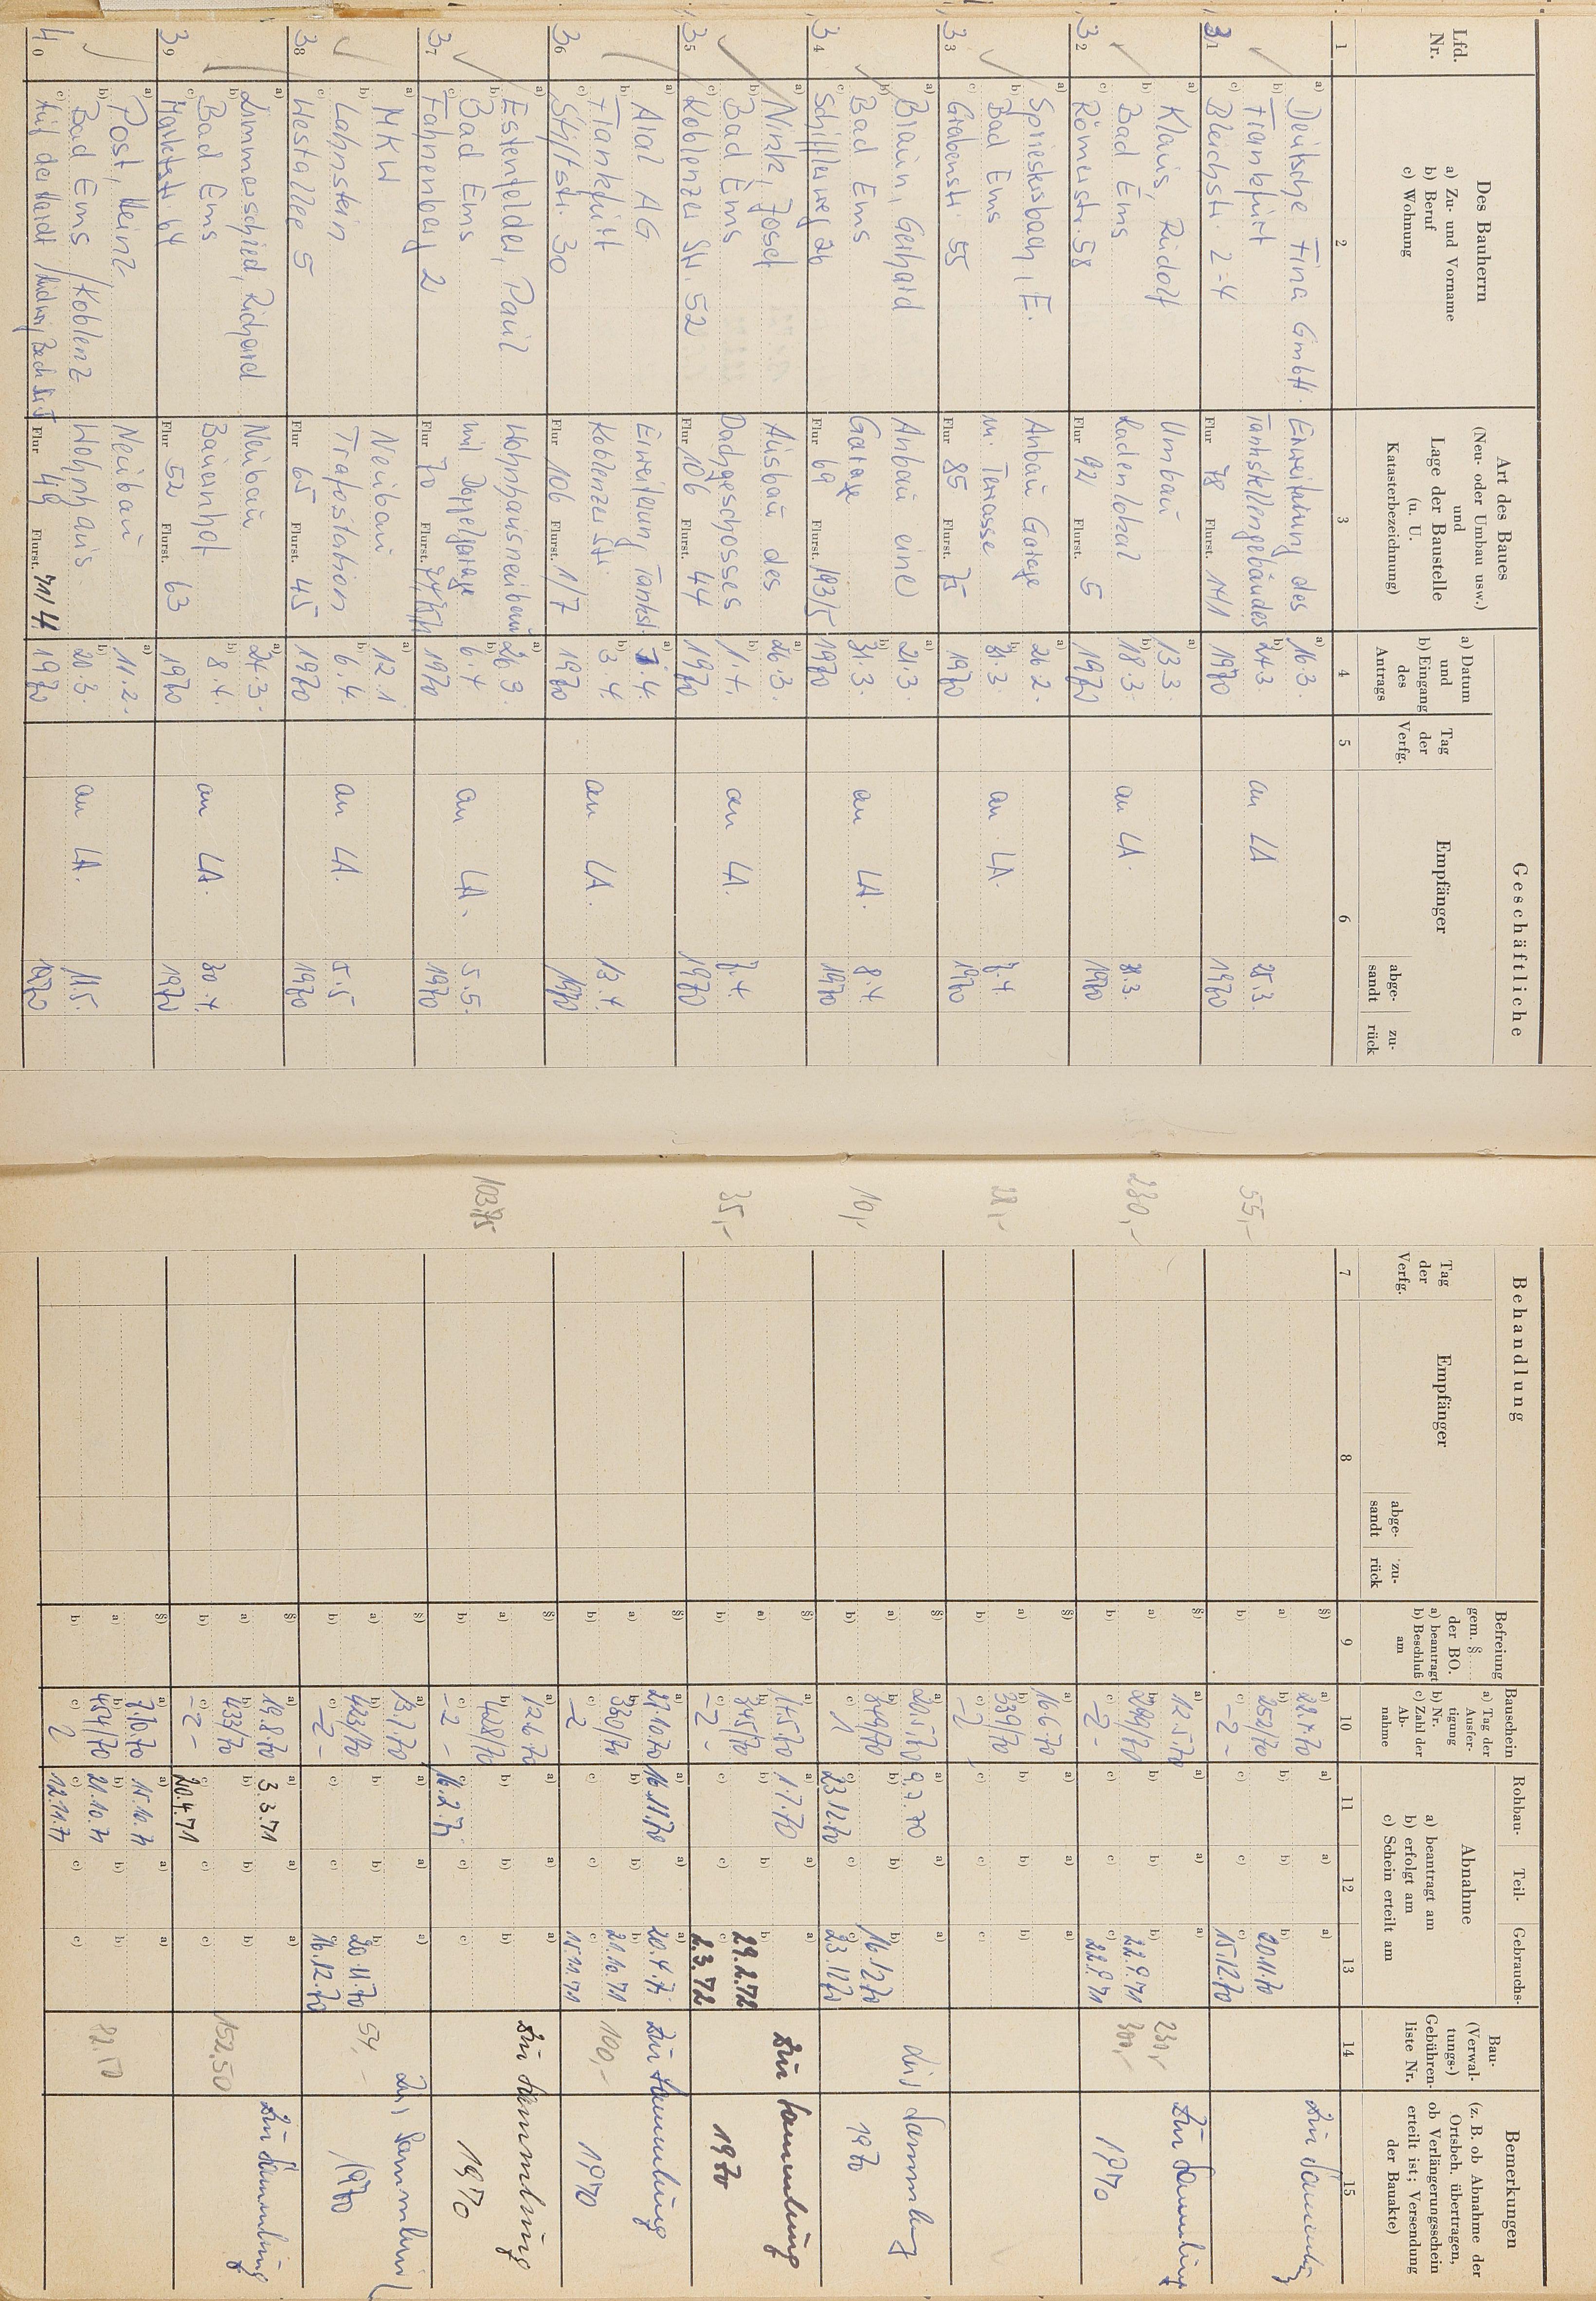 Geschäftliche
Lfd.
Nr.
Des Bauherrn
a) Zu- und Vorname
b) Beruf
c) Wohnung
Art des Baues
(Neu- oder Umbau usw.)
und
Lage der Baustelle
(u. U.
Katasterbezeichnung)
a) Datum
und
b) Eingang
des
Antrags
Tag
der
Verfg.
Empfänger
abge-
sandt
zu-
rück
1 2 3 4 5 6
31
a) Deutsche Fina GmbH.
b) Frankfurt
c) Bleichstr. 2-4
Erweiterung des
Tankstellengebäudes
Flur 78 Flurst. 14/1
a) 16.3.
b) 24.3
1970
an LA
25.3.
1970
32
a) Klaus, Rudolf
b) Bad Ems
c) Römerstr. 58
Umbau
Ladenlokal
Flur 92 Flurst. 5
a) 13.3
b) 18.3
1970
an LA.
1970
33
a) Spriesterbach, E.
b) Bad Ems
c) Grabenstr. 55
Anbau Garage
m. Terrasse
Flur 85 Flurst. 75
a) 26.2.
b) 31.3
1970
an LA.
7.4.
1970
34
a) Braun, Gerhard
b) Bad Ems
c)
Anbau eine
Garage
Flur 69 Flurst. 193/5
a) 21.3.
b) 31.3.
1970
an LA.
8.4
1970
35
a) Nink, Josef
b) Bad Ems
c) Koblenzer Str. 52
Ausbau des
Dachgeschosses
Flur 106 Flurst. 44
a) 26.3.
b) 1.4.
1970
an LA.
7.4.
1970
36
a) Aral AG
b) Frankfurt
c) Stiftstr. 30
Erweiterung Tankst.
Koblenzer Str.
Flur 106 Flurst. 1/7
b) 3.4.
1970
an LA.
13.4.
1970
37
a) Estenfelder, Paul
b) Bad Ems
c) Fahnenberg 2
Wohnhausneubau
mit Doppelgarage
Flur 70 Flurst.
a) 26.3.
b) 6.4
1970
an LA.
5.5.
1970
38
a) MKW
b) Lahnstein
c) Westallee 5
Neubau
Trafostation
Flur 65 Flurst. 45
a) 12.1
b) 6.4.
1970
an LA.
5.5
1970
39
a) Limmerschied, Richard
b) Bad Ems
c) Marktstr. 64
Neubau
Bauernhof
Flur 52 Flurst. 63
a) 27.3.
b) 8.4.
1970
an LA.
30.4.
1970
40
a) Post, Heinz,
b) Bad Ems / Koblenz
c) Auf der Heide
Neubau
Wohnhaus
Flur 49 Flurst.
a) 11.2.
b) 20.3.
1970
an LA.
11.5.
1970
Behandlung
Tag
der
Verfg.
Empfänger
abge-
sandt
zu-
rück
Befreiung
gem. §
der BO.
a) beantragt
b) Beschluß
am
Bauschein
a) Tag der
Ausfer-
tigung
b) Nr.
c) Zahl der
Ab-
nahme
Rohbau- Teil- Gebrauchs-
Abnahme
a) beantragt am
b) erfolgt am
c) Schein erteilt am
Bau-
(Verwal-
tungs-)
Gebühren-
liste Nr.
Bemerkungen
(z. B. ob Abnahme der
Ortsbeh. übertragen,
ob Verlängerungsschein
erteilt ist; Versendung
der Bauakte)
7 8 9 10 11 12 13 14 15
55,-
252/70
-2-
20.11.70
15.12.70
Zur Sammlung
230,-
12.5.70
-2-
22.9.71
22.9.71
230,-
300,-
Zur Sammlung
1970
16.6.70
339/70
-2
10,-
20.5.70
349/70
1
9.7.70
23.12.70
16.12.70
23.12.70
Zur Sammlung
1970
35,-
14.5.70
345/70
-2-
1.7.70
29.2.72
2.3.72
Zur Sammlung
1970
27.10.70
330/70
-2
16.11.70
20.4.71
21.10.71
15.11.71
100,-
Zur Sammlung
1970
103,75
12.6.70
428/70
-2-
16.2.71
Zur Sammlung
1970
13.7.70
423/70
-2-
20.11.70
16.12.70
54,-
Zur Sammlung
1970
19.8.70
433/70
-2-
3.3.71
20.4.71
152.50
Zur Sammlung
7.10.70
454/70
2
15.10.71
21.10.71
12.11.71
82.50